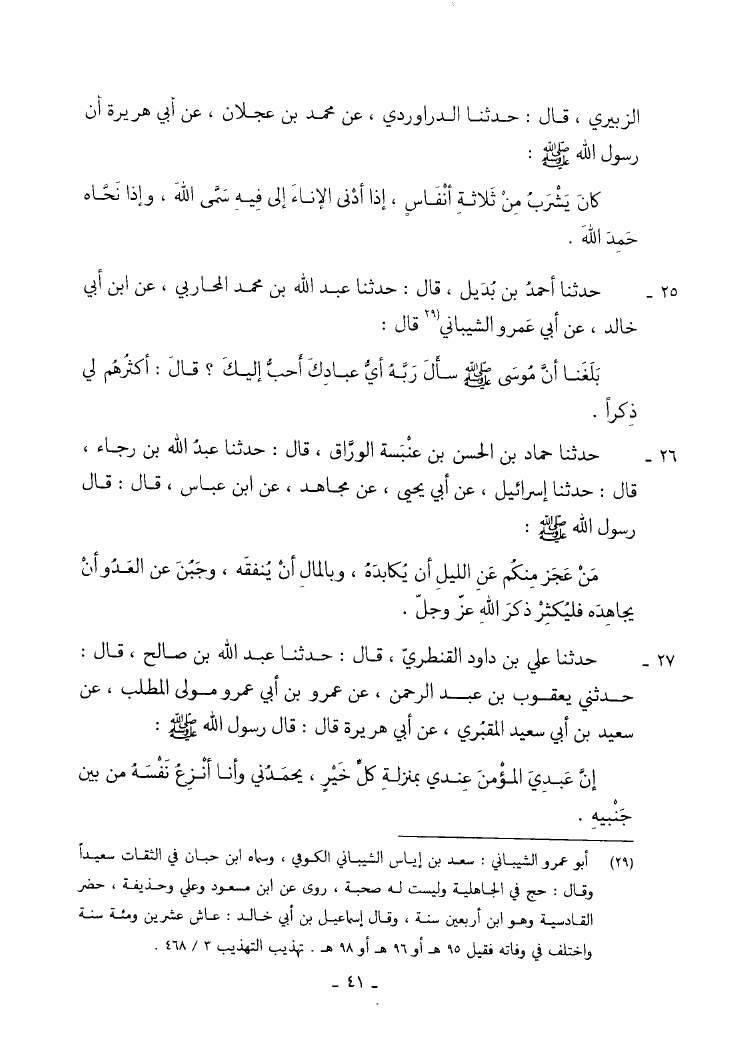 الزبيري ، قال : حدثنا الدراوردي ، عن محمد بن عجلان ، عن أبي هريرة أن
رسول الله ﷺ :
كانَ يَشْرَبُ مِنْ ثَلاثةِ أنْفَاسٍ ، إذا أدْنى الإناءَ إلى فيهِ سَمَّى اللهَ ، وإذا نَحَّاه
حَمِدَ اللهَ .
٢٥ - حدثنا أحمدُ بن بُدَيل ، قال : حدثنا عبد الله بن محمد المحاربي ، عن ابن أبي
خالد ، عن أبي عَمرو الشيباني(٢٩ قال :
بَلَغَنا أنَّ مُوسَى ﷺ سألَ رَبَّهُ أيُّ عبادِكَ أحبُّ إليكَ ؟ قالَ : أكثرُهُم لي
ذِكراً .
٢٦ - حدثنا حماد بن الحسن بن عنْبَسة الورَّاق ، قال : حدثنا عبدُ الله بن رجاء ،
قال : حدثنا إسرائيل ، عن أبي يحيى ، عن مجاهد ، عن ابن عباس ، قال : قال
رسول الله ﷺ :
مَنْ عَجَز مِنكُم عَنِ الليلِ أن يُكابدَهُ ، وبالمال أنْ يُنفقَه ، وجَبُنَ عن العَدُو أنْ
يجاهدَه فليُكثِرْ ذكرَ اللهِ عزّ وجلّ .
٢٧ - حدثنا علي بن داود القنطريّ ، قال : حدثنا عبد الله بن صالح ، قال :
حدثني يعقوب بن عبد الرحمن ، عن عمرو بن أبي عمرو مولى المطلب ، عن
سعيد بن أبي سعيد المقبُري ، عن أبي هريرة قال : قال رسول الله ﷺ :
إنَّ عَبدِيَ المؤْمنَ عِندي بمَنزلةِ كلِّ خَيْرٍ ، يحمَدُني وأنا أنْزِعُ نَفْسَهُ من بين
جَنْبيهِ .
(٢٩) أبو عمرو الشيباني : سعد بن إياس الشيباني الكوفي ، وسماه ابن حبان في الثقات سعيداً
وقال : حج في الجاهلية وليست له صحبة ، روى عن ابن مسعود وعلي وحذيفة ، حضر
القادسية وهو ابن أربعين سنة ، وقال إسماعيل بن أبي خالد : عاش عشرين ومئة سنة
واختلف في وفاته فقيل ٩٥ هـ أو ٩٦ هـ أو ٩٨ هـ . تهذيب التهذيب ٣ / ٤٦٨ .
- ٤١ -